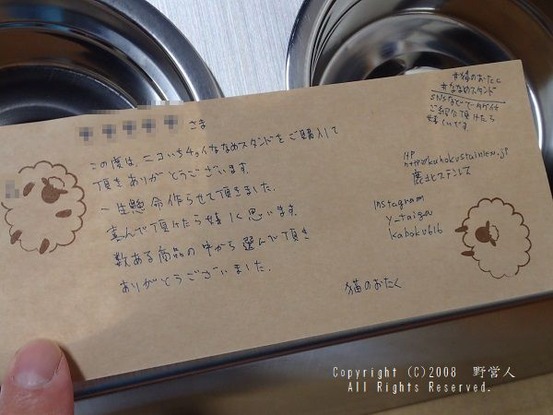 さま
この度は、ニコいちチョイななめスタンドをご購入して
頂きありがとうございます。
一生懸命作らせて頂きました。
喜んで頂けたら嬉しく思います。
数ある商品の中から選んで頂き
ありがとうございました。
#猫のおたく
#ななめスタンド
SNSなどで
ご紹介頂けたら
嬉しいです。
HP
鹿北ステンレス
Instagram
y_taiga
kahoku616
猫のおたく
Copyright (C)2008 野営人
All Rights Reserved.